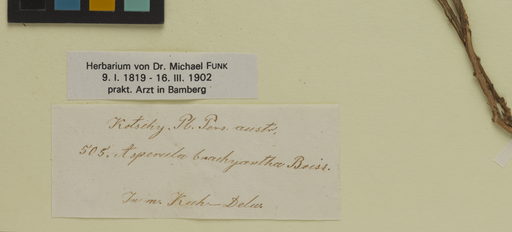 Herbarium von Dr. Michael FUNK
9. I. 1819 - 16. III. 1902
prakt. Arzt in Bamberg
Kotschy, Pl. Pers. austr.
505. Asperula brachyantha Boiss.
In m. Kuh-Delu